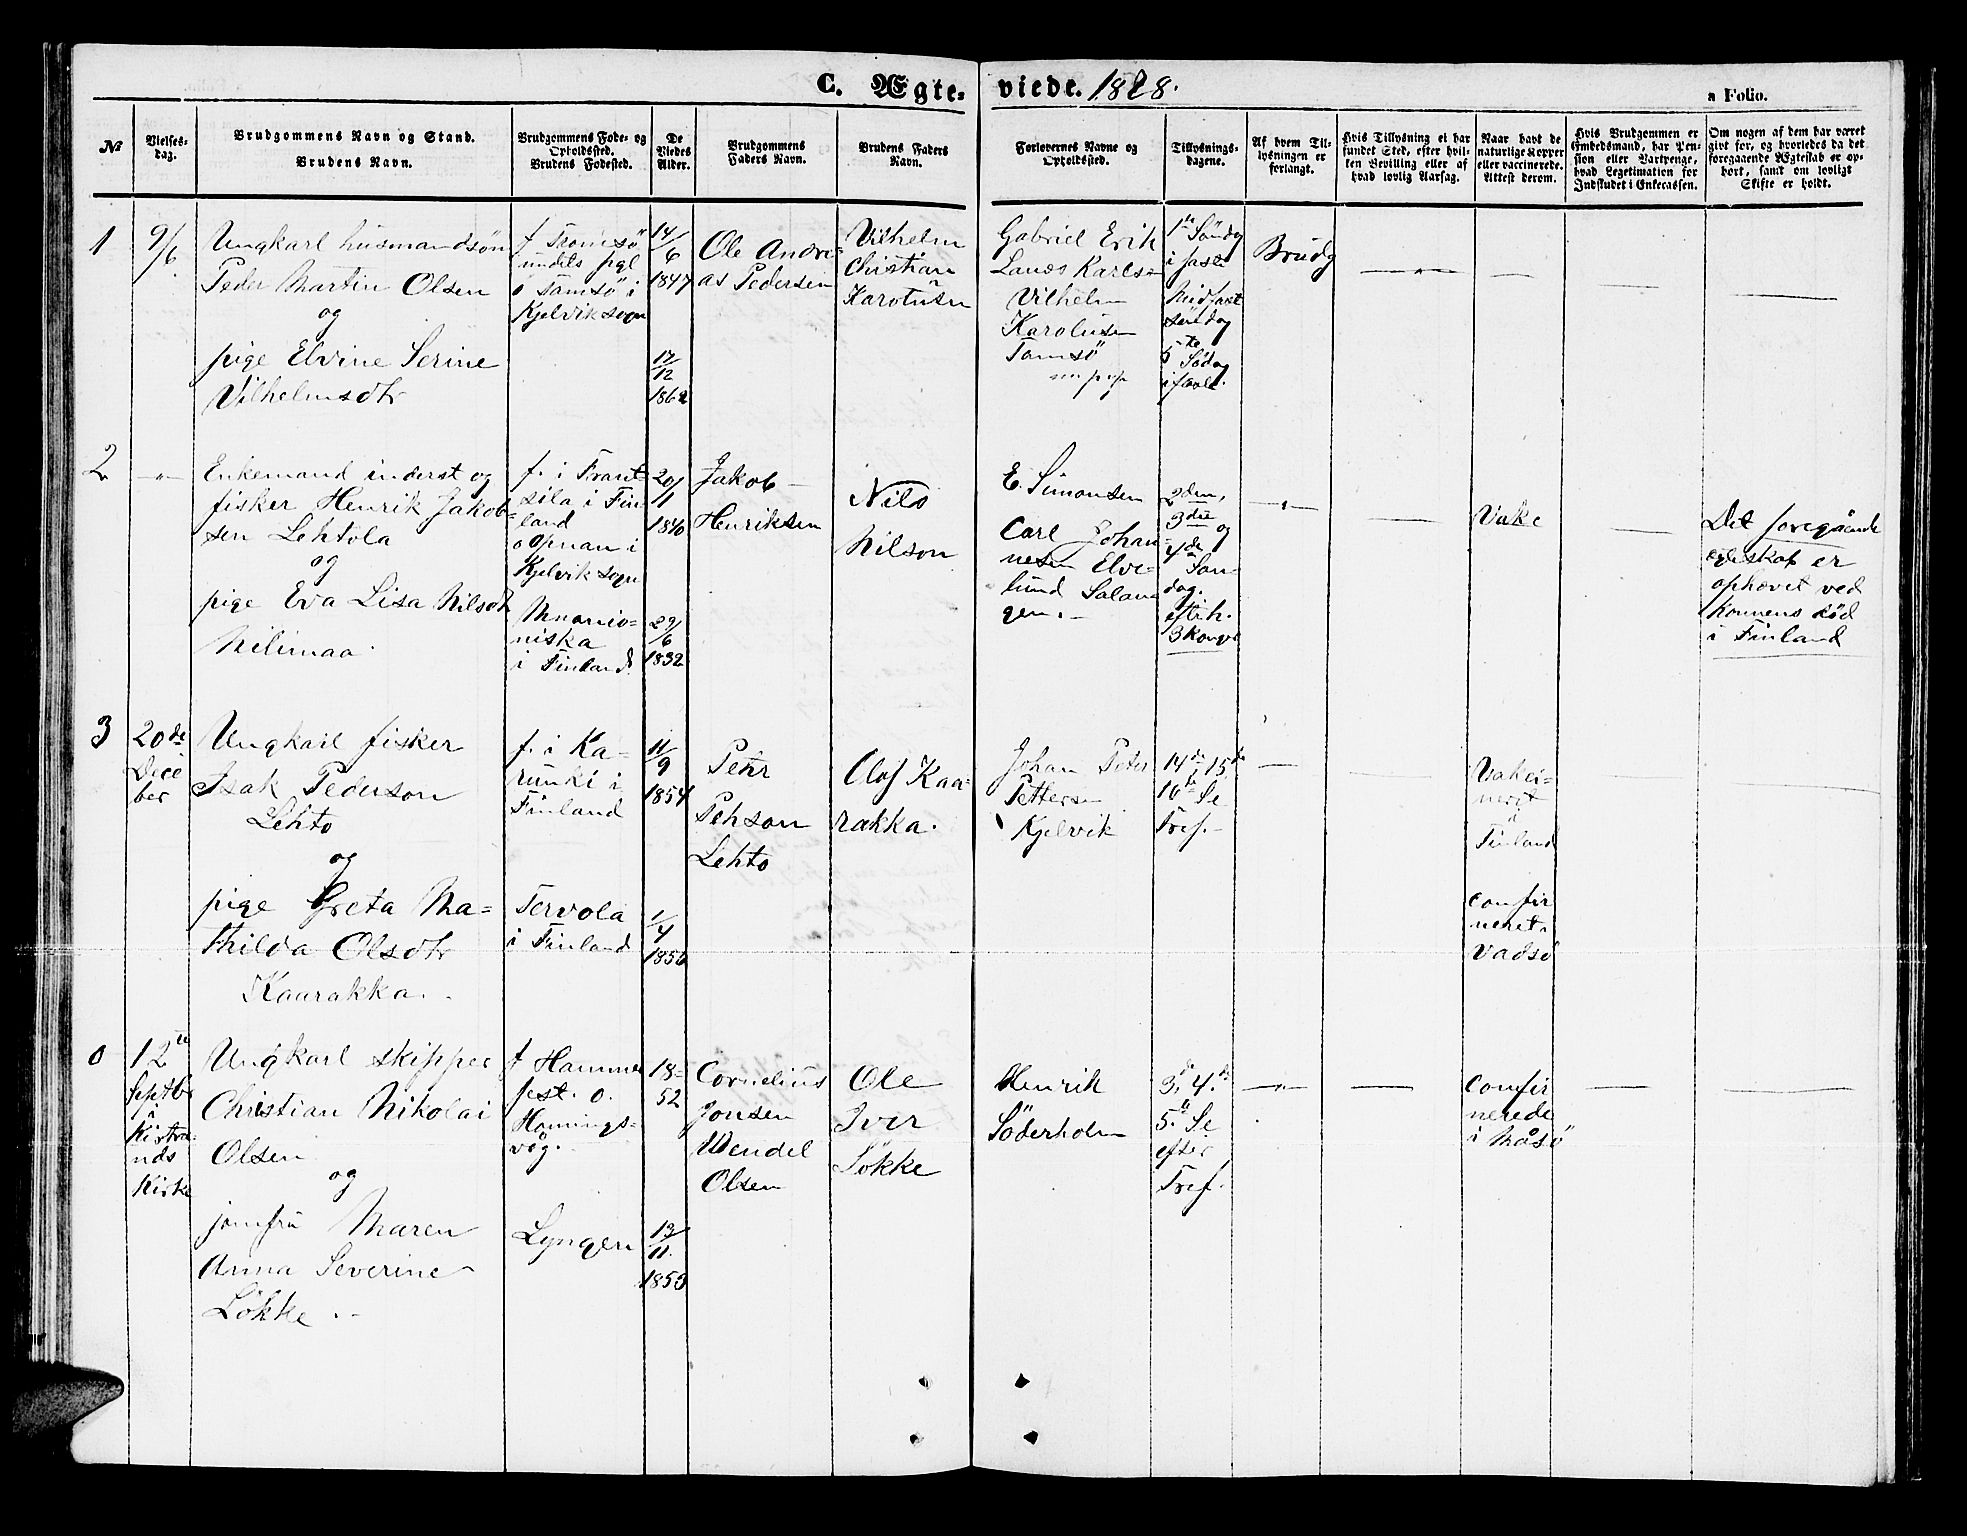 C. Ægte-
viede. 1878.
a Folio.
№
Vielses-
dag.
Brudgommens Navn og Stand.
Brudens Navn.
Brudgommens Føde- og
Opholdssted.
Brudens Fødested.
De
Viedes
Alder.
Brudgommens
Faders Navn.
Brudens Faders
Navn.
Forlovernes Navne og
Opholdssted.
Tillysnings-
dagene.
Af hvem Til-
lysningen er
forlangt.
Hvis Tillysning ei har
fundet Sted, efter hvil-
ken Bevilling eller af
hvad lovlig Aarsag.
Naar havt de
naturlige Kopper
eller vaccinerede.
Attest derom.
Hvis Brudgommen er
Embedsmand, har Pen-
sion eller Vartpenge,
hvad Legetimation for
Indskudet i Enkecassen.
Om nogen af dem har været
givt før, og hvorledes da det
foregaaende Ægteskab er op-
hørt, samt om lovligt
Skifte er holdt.
1
9/6
Ungkarl husmandsøn
Peder Martin Olsen
og
pige Elvine Serine
Vilhelmsdtr
f Tromsø
undits pgl
o Tamsø i
Kjelvik sogn
14/6
1847
17/12
1862
Ole Andre-
as Pedersen
Vilhelm
Christian
Karolusn
Gabriel Erik
Lanes Karls
Vilhelm
Karolusen
Tamsø
1te Søndg
i faste
Midfast
søndag
5te Sødag
i faste.
Brudg
2
Enkemand inderst og
fisker Henrik Jakob-
sen Lehtola
og
pige Eva Lisa Nilsdtr
Nilimaa
f. i Frant-
sila i Fin
land
o Opnan i
Kjelvik sogn
Muonio-
niska
i Finland
20/1
1840
29/6
1832
Jakob
Henriksen
Nils
Nilson
E. Simonsen
Carl Johan
nesen Elve-
lund Salan
gen.
2den,
3die og
4de Søn-
dag.
eft. h.
3 konger
Vake
Det foregående
egteskab er
ophævet ved
konens död
i Finland
3
20de
Dece
ber
Ungkarl fisker
Isak Pederson
Lehto
og
pige Greta Ma-
thilda Olsdtr
Kaarakka.
f. i Ka-
runki i
Finland
Tervola
i Finland
11/9
1854
1/4
1856
Petr
Pehson
Lehto
Olof Kaa-
rakka.
Johan Peter
Petters
Kjelvik
14de 15de
16de Se
Tref.
Vakci-
nert
i
Finland
confir
neret
Vadsø
0
12te
Septbr
i
Kistra-
nds
Kirke
Ungkarl skipper
Christian Nikolai
Olsen
og
jomfru Maren
Anna Severine
Løkke
f Hammer
fest. o.
Honnings-
våg.
Lyngen
18-
52
19/11
1853
Cornelius
Jonsen
Wendel
Olsen
Ole
Iver
Løkke
Henrik
Söderholm
3de 4de
5te Se
efter
Tref.
confir
nerede
i Måsø